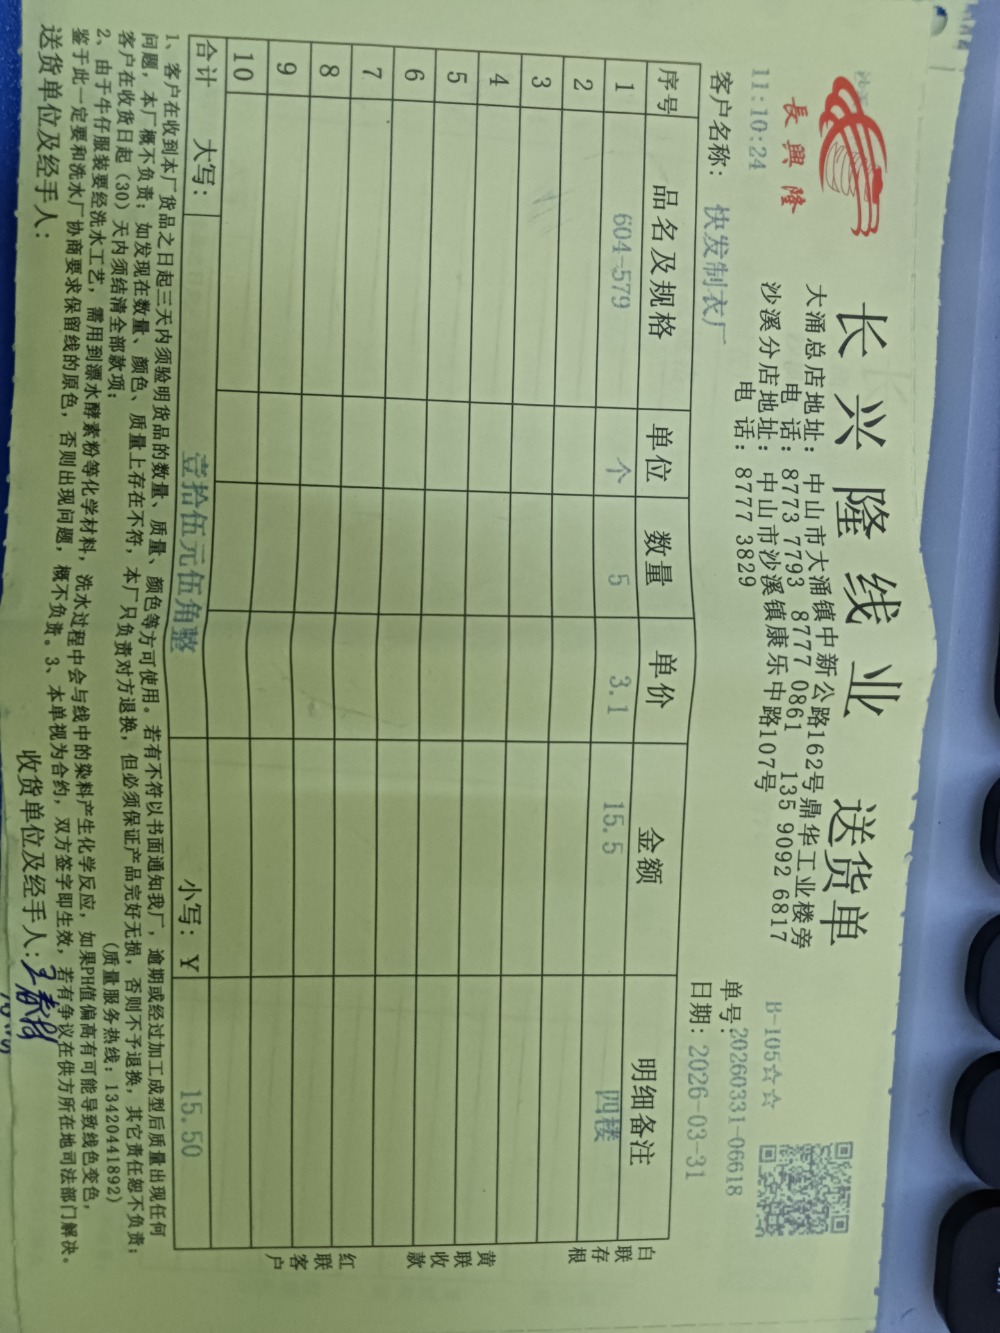 長興隆
长兴隆线业 送货单
大涌总店地址：中山市大涌镇中新公路162号鼎华工业楼旁
电 话：8773 7793 8777 0861 135 9092 6817
沙溪分店地址：中山市沙溪镇康乐中路107号
电 话：8777 3829
11:10:24
B-105☆☆
单号：20260331-06618
客户名称：快发制衣厂
日期：2026-03-31
序号 品名及规格 单位 数量 单价 金额 明细备注
1 604-579 个 5 3.1 15.5 四楼
2
3
4
5
6
7
8
9
10
合计 大写：壹拾伍元伍角整 小写：￥ 15.50
白联存根
黄联收款
红联客户
1、客户在收到本厂货品之日起三天内须验明货品的数量、质量、颜色等方可使用。若有不符以书面通知我厂，逾期或经过加工成型后质量出现任何
问题，本厂概不负责；如发现在数量、颜色、质量上存在不符，本厂只负责对方退换，但必须保证产品完好无损，否则不予退换，其它责任恕不负责；
客户在收货日起（30）天内须结清全部款项； （质量服务热线：13420441892）
2、由于牛仔服装要经洗水工艺，需用到漂水酵素粉等化学材料，洗水过程中会与线中的染料产生化学反应，如果PH值偏高有可能导致线色变色，
鉴于此一定要和洗水厂协商要求保留线的原色，否则出现问题，概不负责。3、本单视为合约，双方签字即生效，若有争议在供方所在地司法部门解决。
送货单位及经手人： 收货单位及经手人：